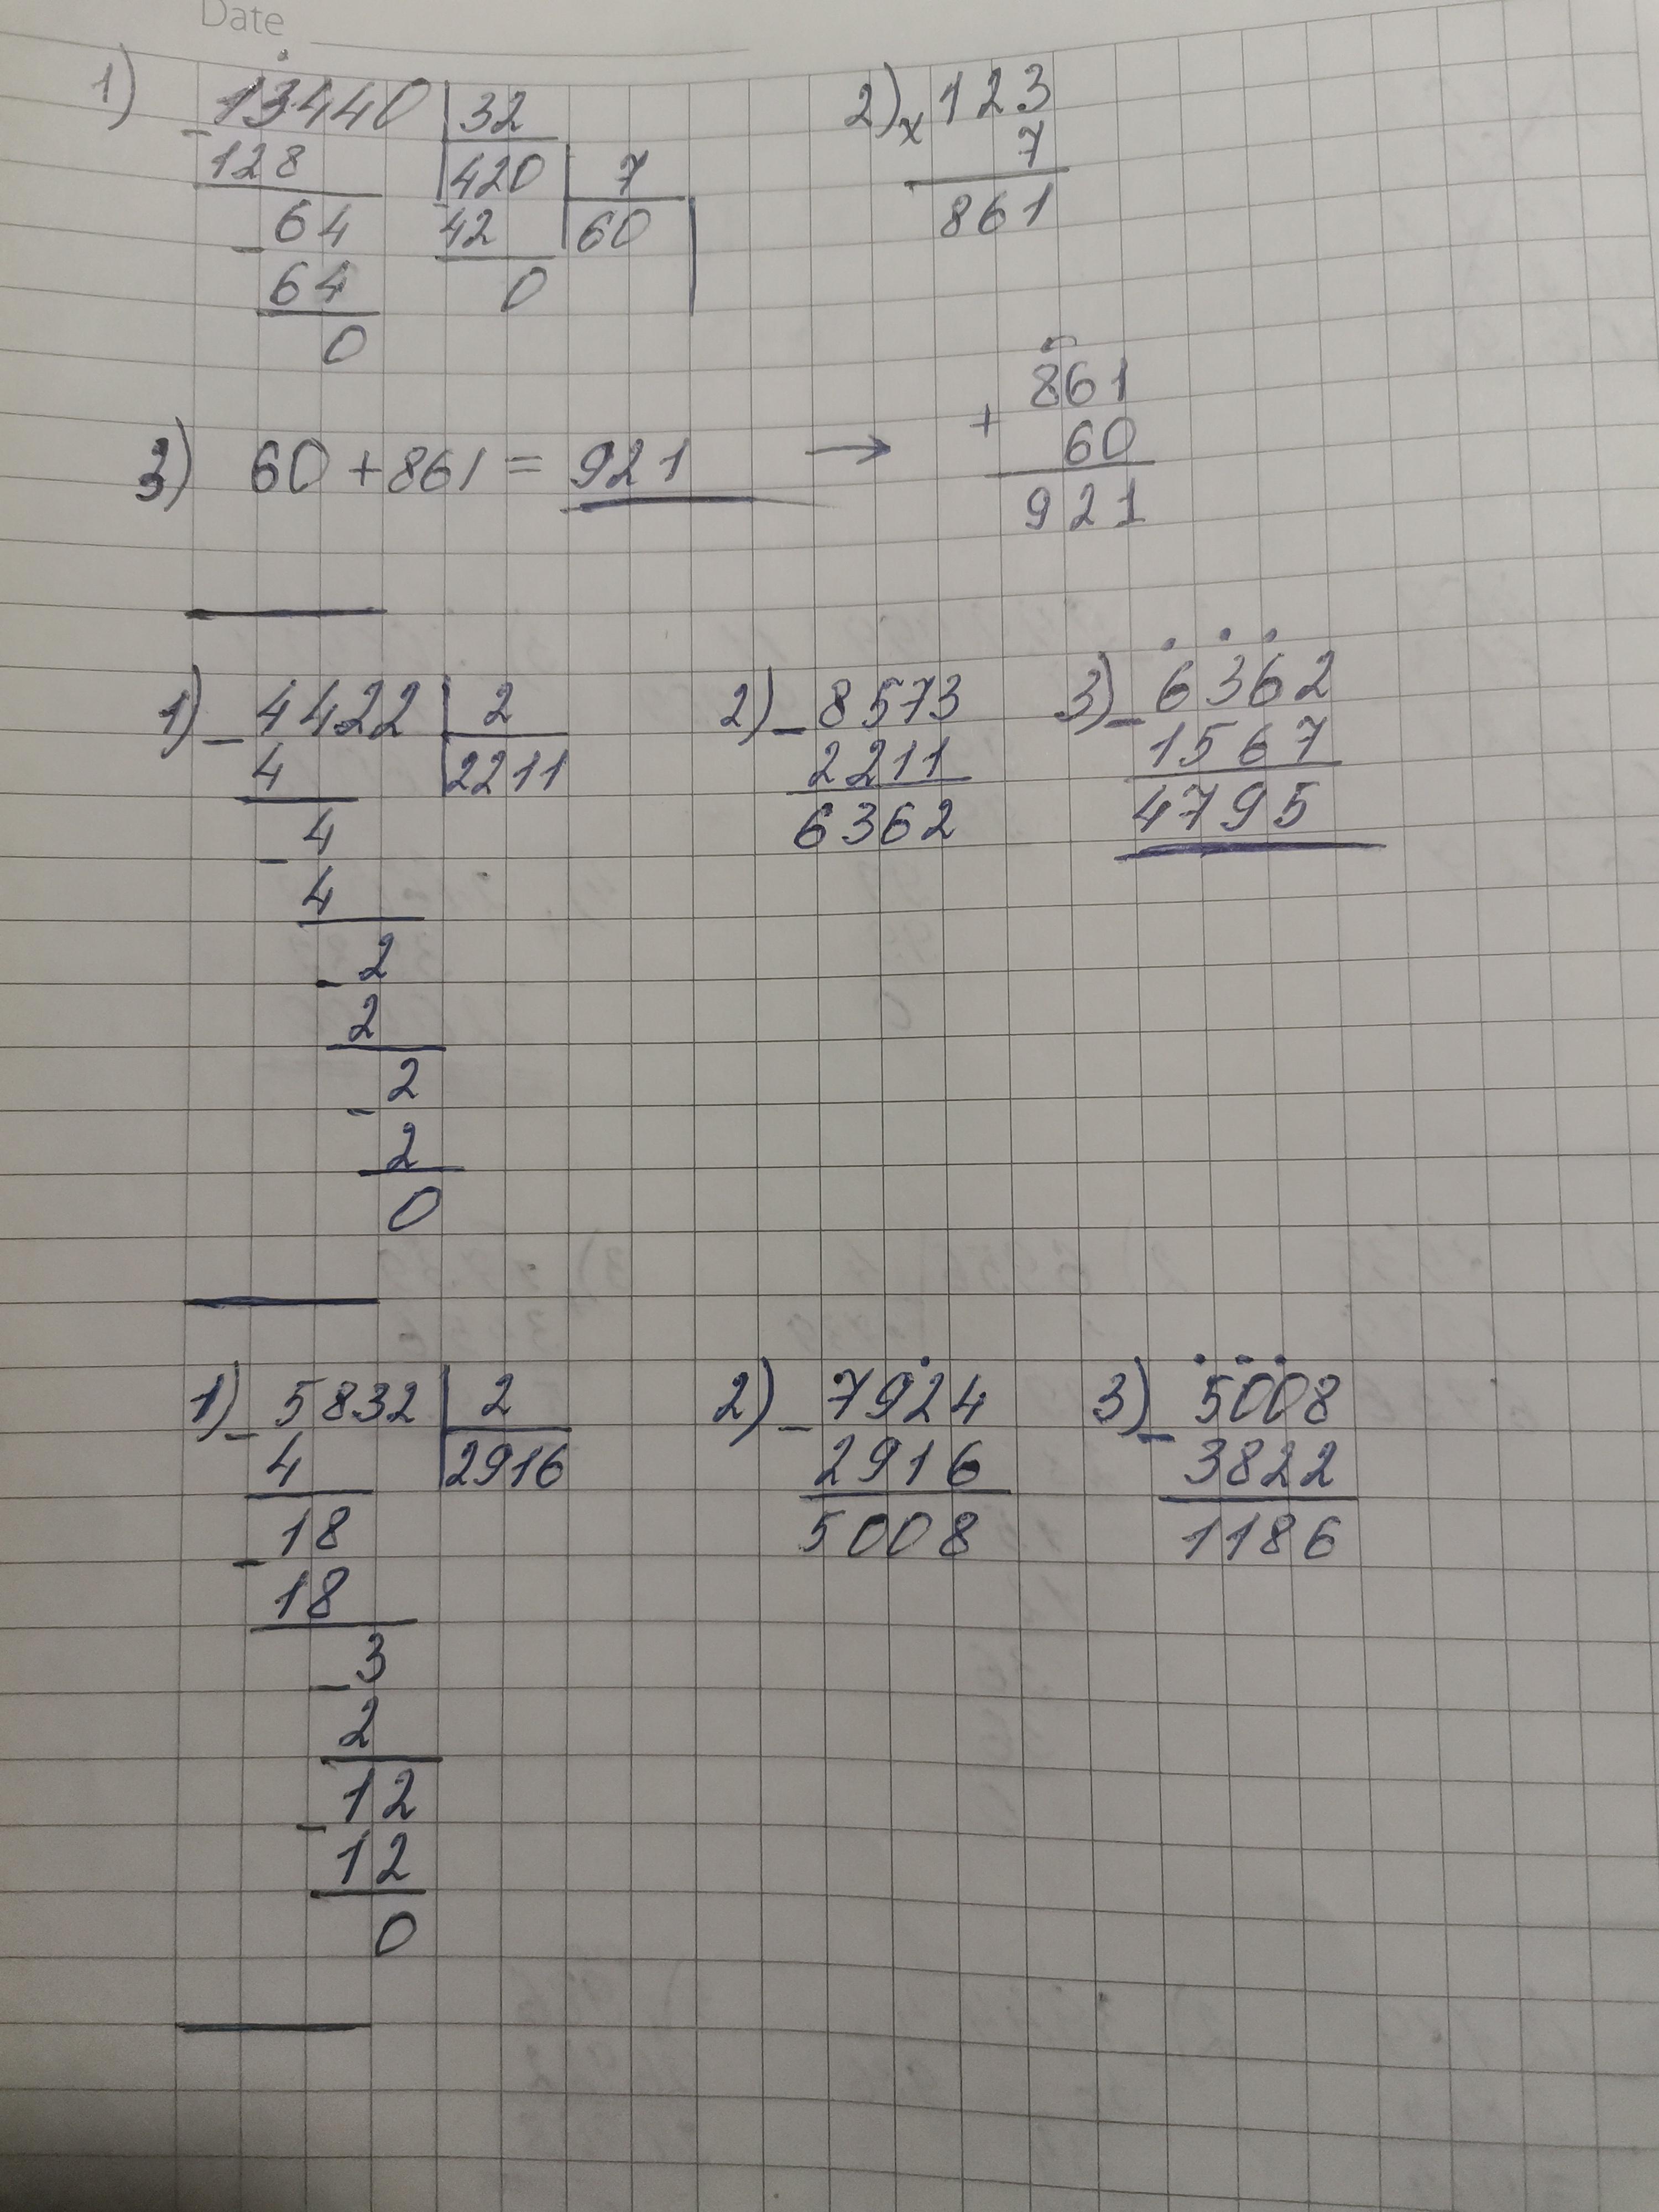 Date
1) - 13440 | 32
128 | 420 | 7
- 64 - 42 | 60
64 0
0
2) x 123
7
861
3) 60 + 861 = 921 →
+ 861
60
921
1) - 4422 | 2
4 | 2211
- 4
4
- 2
2
- 2
2
0
2) - 8573
2211
6362
3) - 6362
1567
4795
1) - 5832 | 2
4 | 2916
- 18
18
- 3
2
- 12
12
0
2) - 7924
2916
5008
3) - 5008
3822
1186